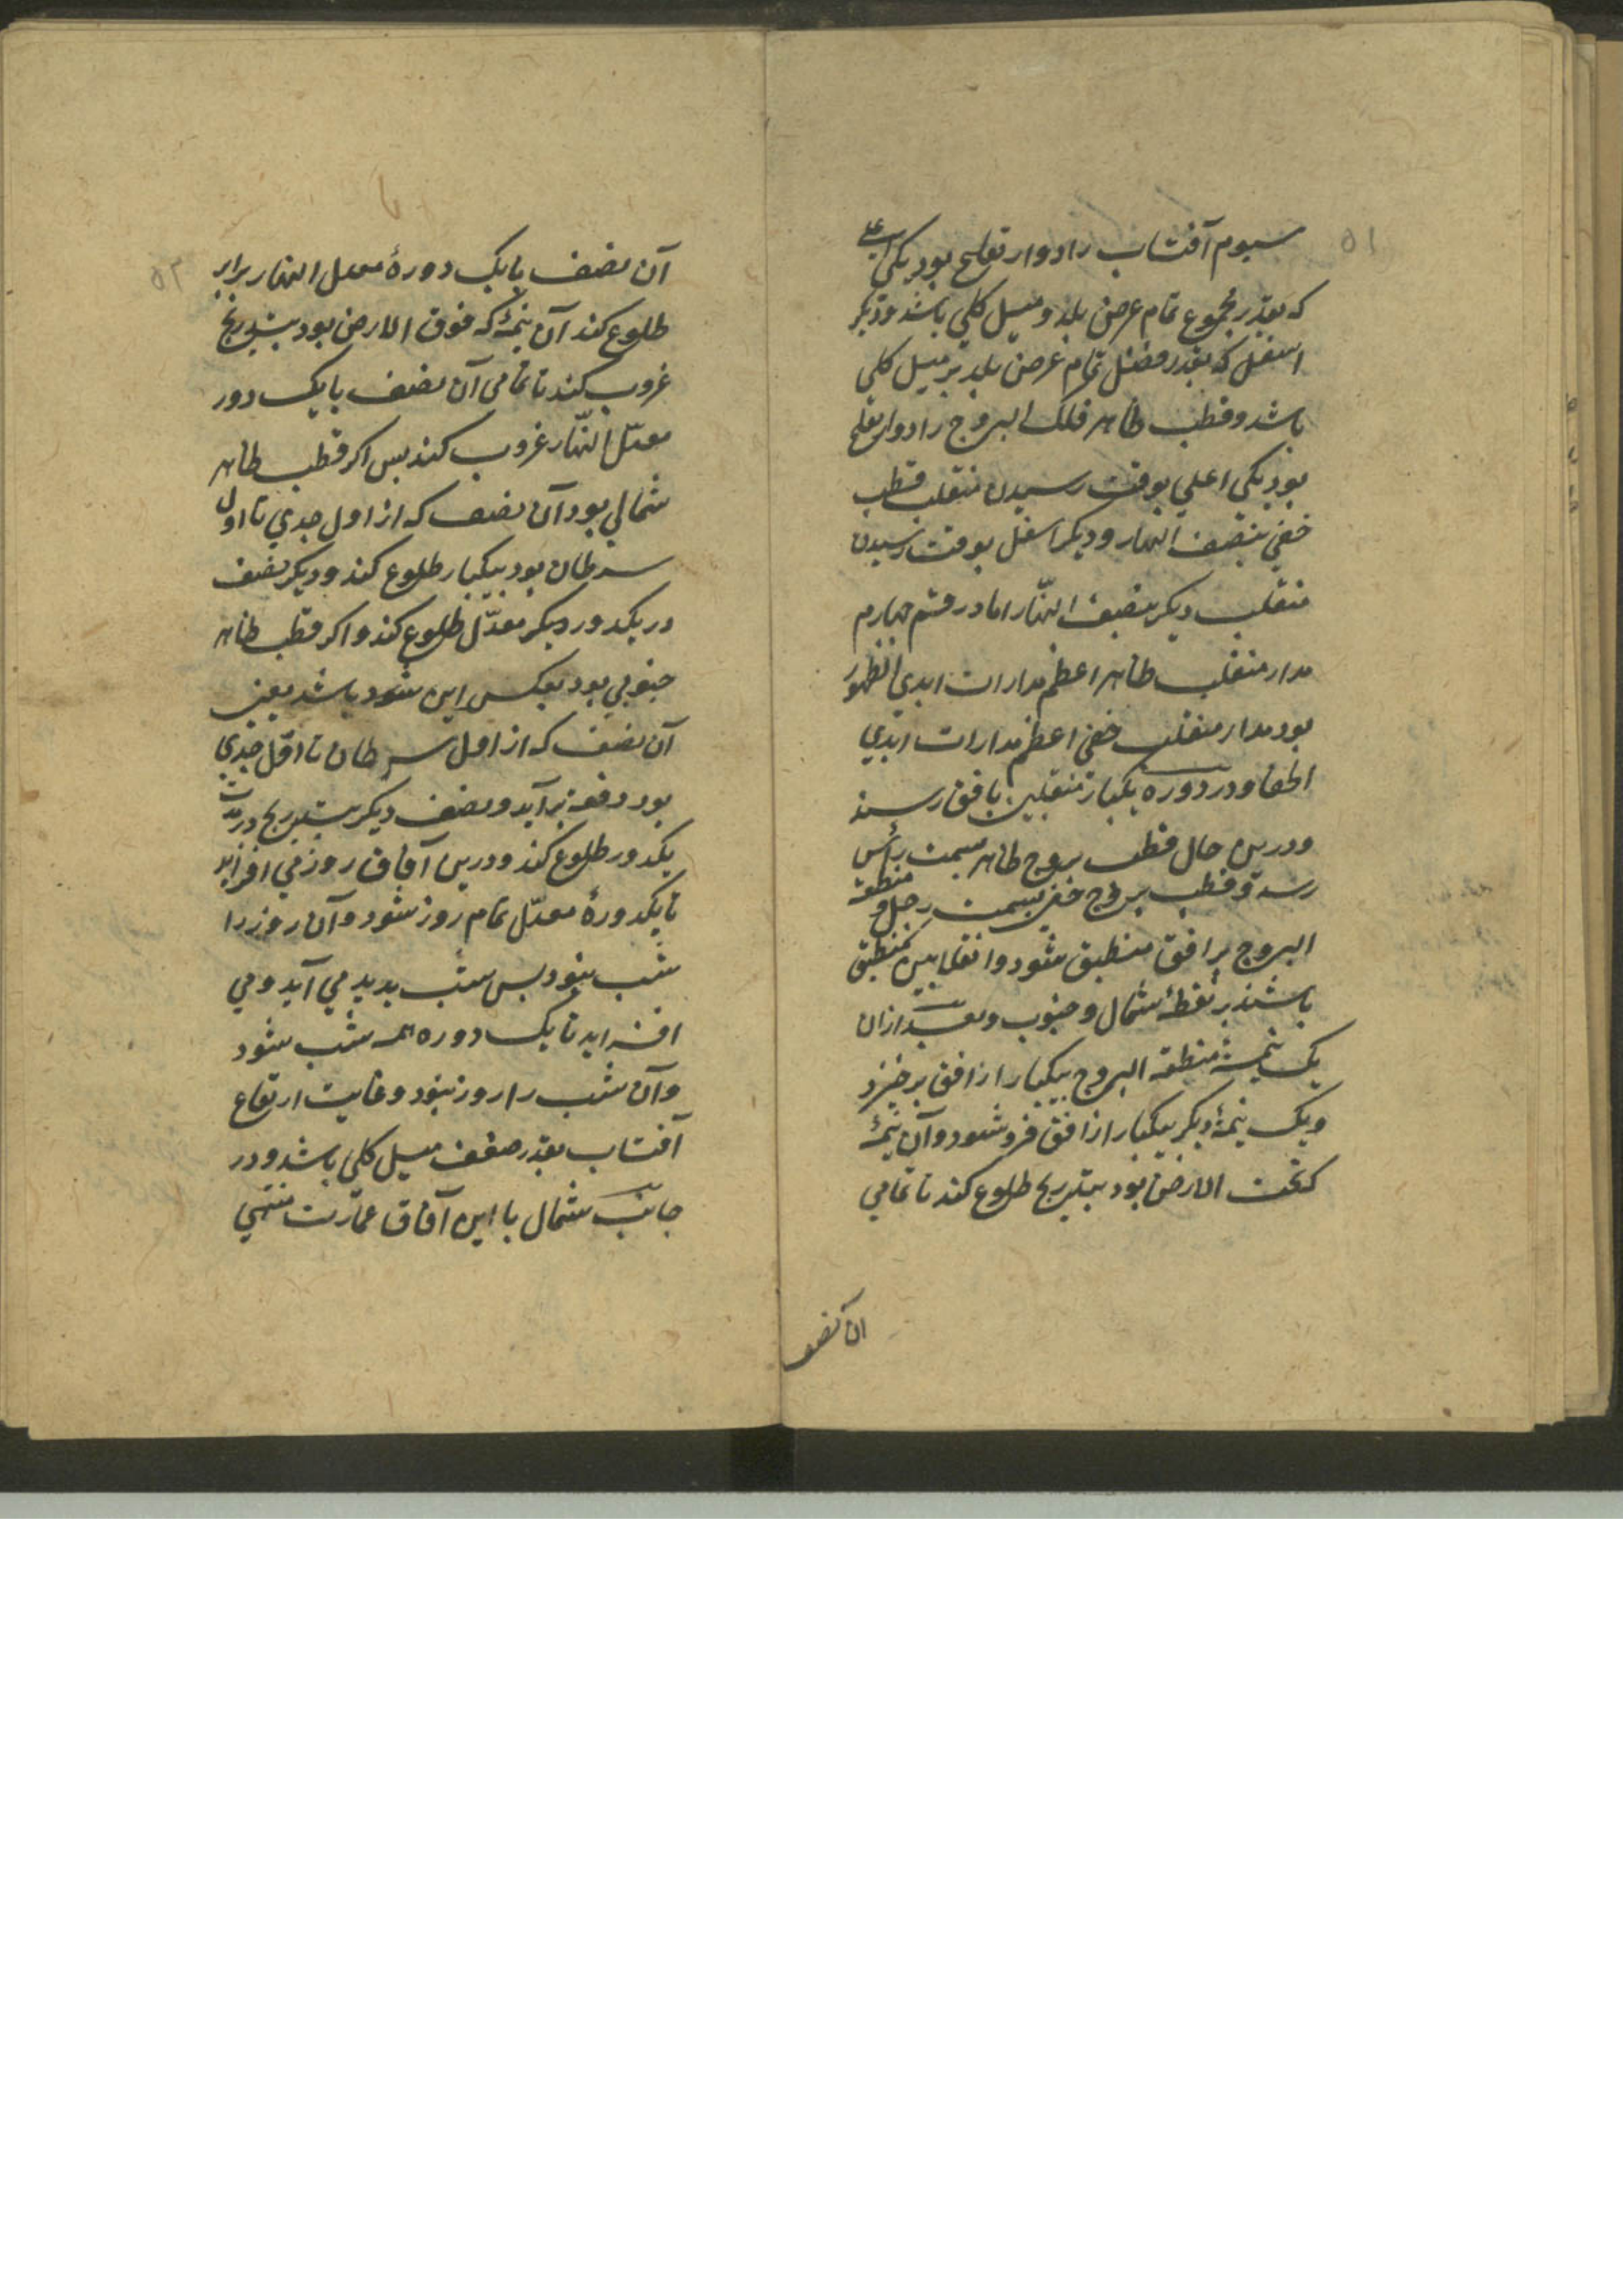 ۵۱
سیوم آفتاب را دو ارتفاع بود یکی اعلی
که بقدر مجموع تمام عرض بلد و میل کلی باشد و دیکر
اسفل که بقدر فضل تمام عرض بلد بر میل کلی
باشد و قطب ظاهر فلک البروج را دو ارتفاع
بود یکی اعلی بوقت رسیدن منقلب قطب
خفی بنصف النهار و دیکر اسفل بوقت رسیدن
منقلب دیکر بنصف النّهار اما در قسم چهارم
مدار منقلب ظاهر اعظم مدارات ابدی الظهور
بود مدار منقلب خفی اعظم مدارات ابدی
الخفا و در دوره یکبار منقلبین بافق رسند
و درین حال قطب بروج ظاهر بسمت رأس
رسد و قطب بروج خفی بسمت رجل و منطقه
البروج بر افق منطبق شود و انقلابین منطبق
باشند بر نقطهٔ شمال و جنوب و بعد از ان
یک نیمهٔ منطقه البروج بیکبار از افق برخیزد
و یک نیمهٔ دیکر بیکبار از افق فرو شود و آن نیمهٔ
که تحت الارض بود بتدریج طلوع کند تا تمامی
ان نصف
۵۲
آن نصف با یک دورهٔ معدل النهار برابر
طلوع کند آن نیمهٔ که فوق الارض بود بتدریج
غروب کند تا تمامی آن نصف با یک دور
معدّل النّهار غروب کند پس اکر قطب ظاهر
شمالی بود آن نصف که از اول جدی تا اول
سرطان بود بیکبار طلوع کند و دیکر نصف
در یکدور دیکر معدّل طلوع کند و اکر قطب ظاهر
جنوبی بود بعکس این شود باشد یعنی
آن نصف که از اول سرطان تا اوّل جدی
بود دفعة برآید و نصف دیکر بتدریج در مدت
یکدور طلوع کند و درین آفاق روز می افزاید
تا یکدورهٔ معدّل تمام روز شود و آن روز را
شب نبود پس شب پدید می آید و می
افزاید تا یک دوره همه شب شود
و آن شب را روز نبود و غایت ارتفاع
آفتاب بقدر ضعف میل کلی باشد و در
جانب شمال با این آفاق عمارت منتهی